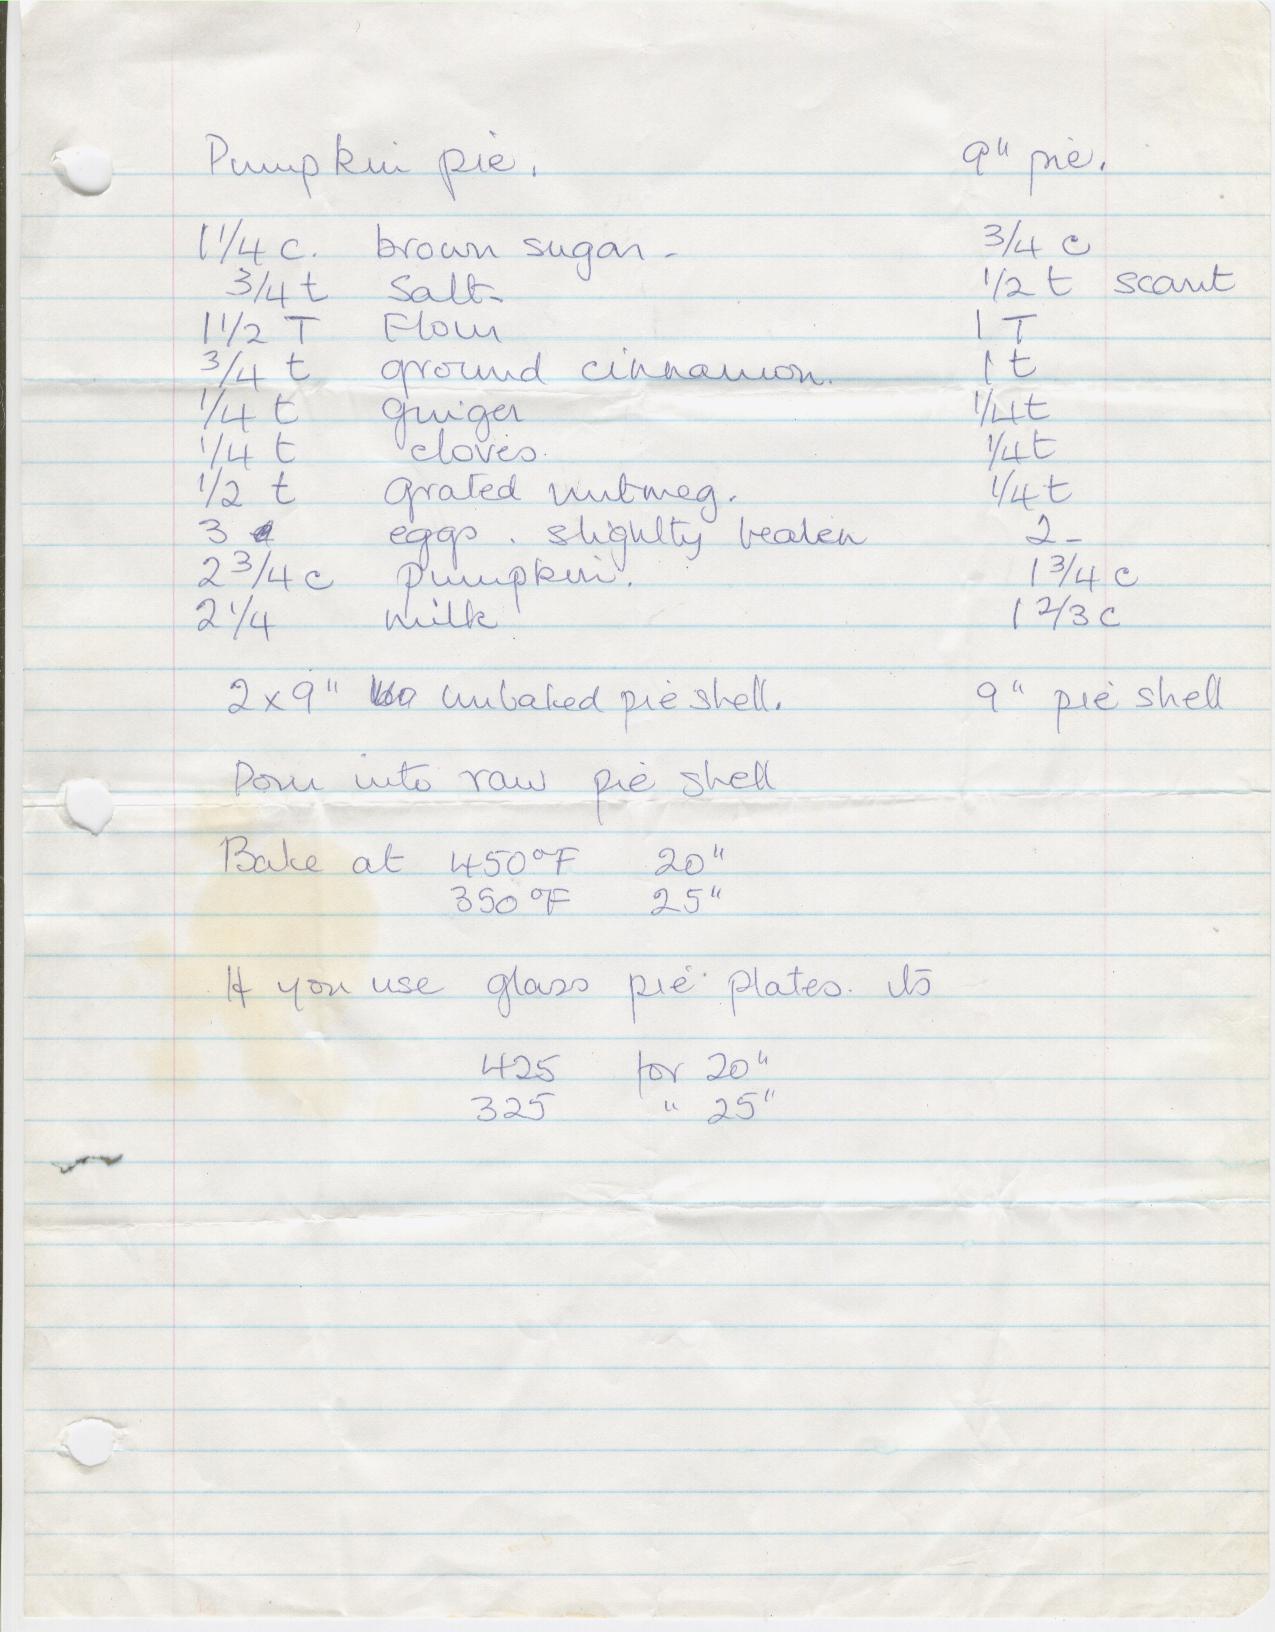 Pumpkin pie. 9" pie.
1 1/4 c. brown sugar - 3/4 c
3/4 t Salt- 1/2 t scant
1 1/2 T Flour 1 T
3/4 t ground cinnamon. 1 t
1/4 t ginger 1/4 t
1/4 t cloves. 1/4 t
1/2 t grated nutmeg. 1/4 t
3 eggs. slighlty beaten 2-
2 3/4 c pumpkin. 1 3/4 c
2 1/4 milk 1 2/3 c
2 x 9" unbaked pie shell. 9" pie shell
Pour into raw pie shell
Bake at 450°F 20"
350°F 25"
If you use glass pie plates. its
425 for 20"
325 " 25"